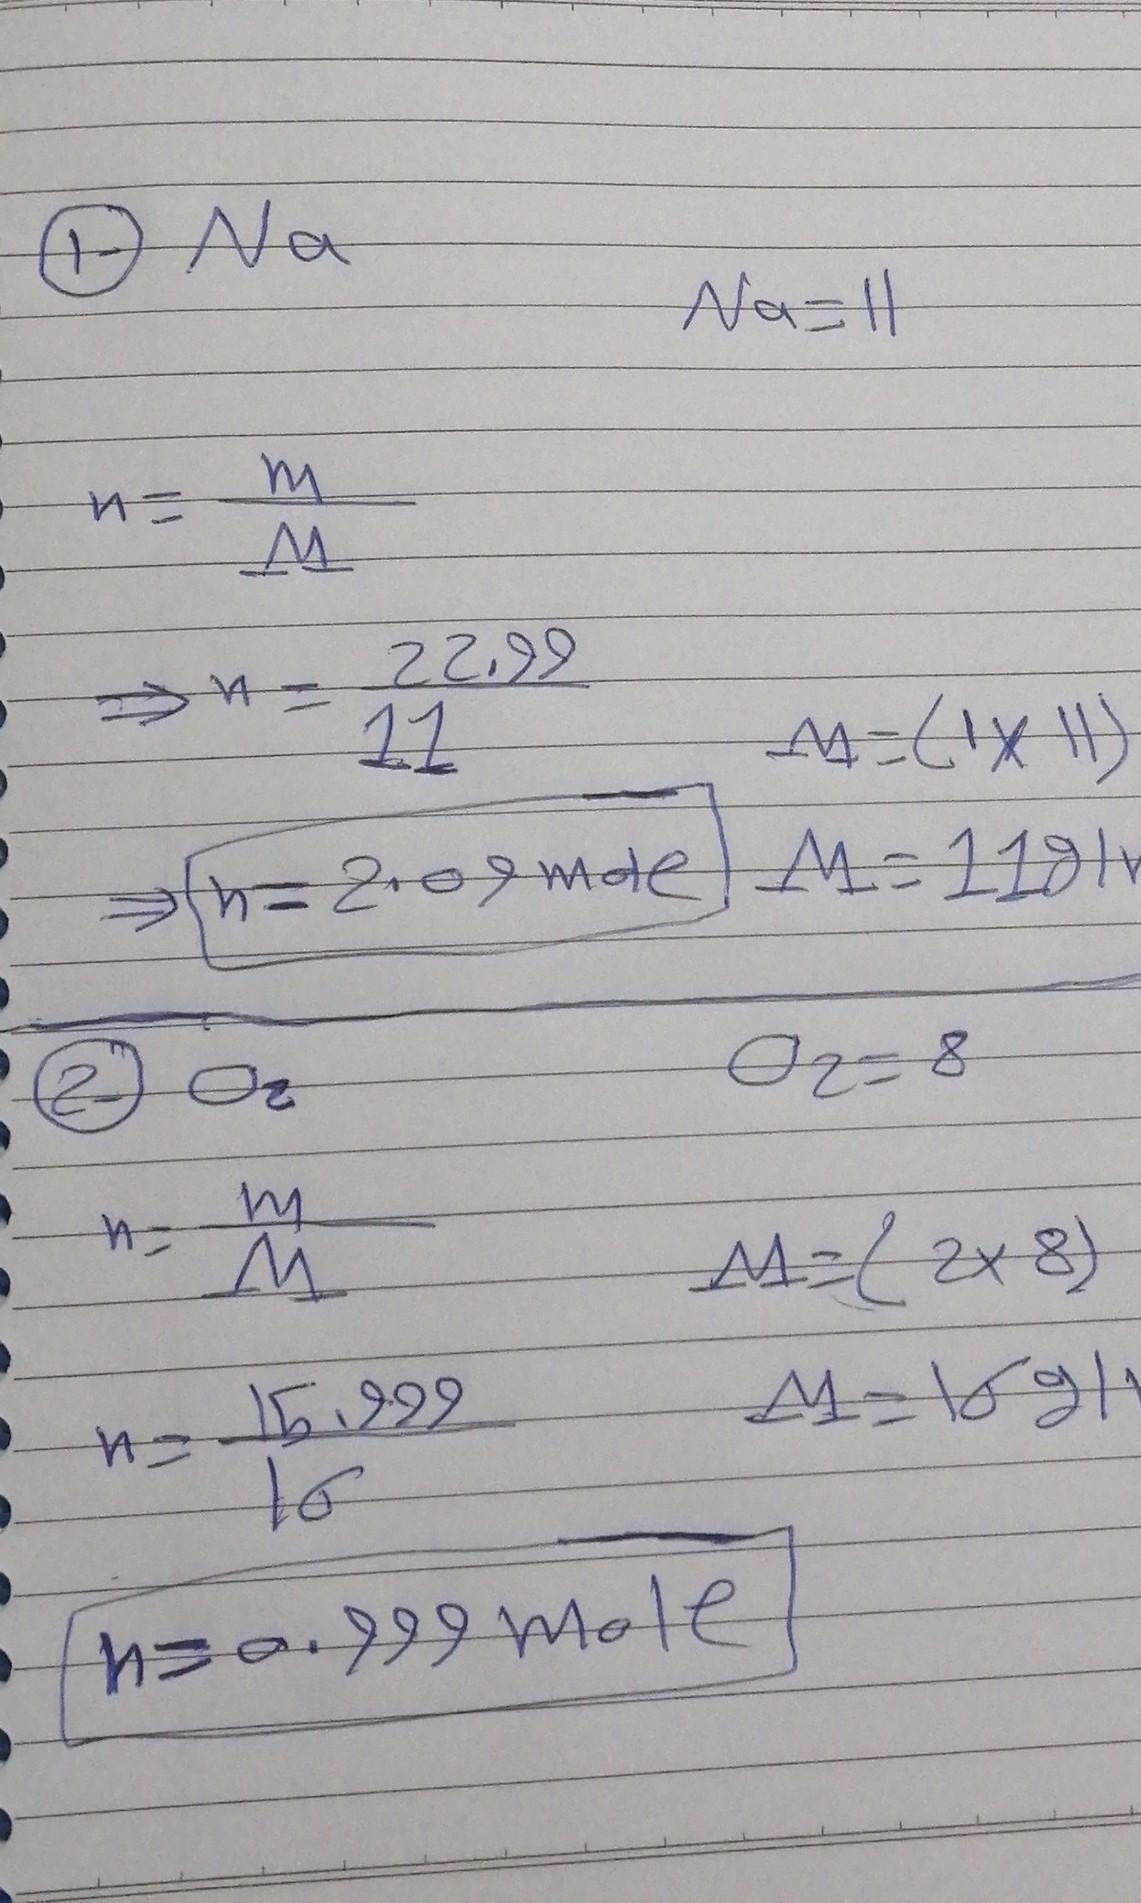 1- Na
Na=11
n= m/M
⇒ n = 22.99/11
M=(1x11)
⇒ n=2.09 mole
M=11g/
2- O₂
O₂=8
n= m/M
M=(2x8)
n= 15.999/16
M=16g/
n=0.999 mole